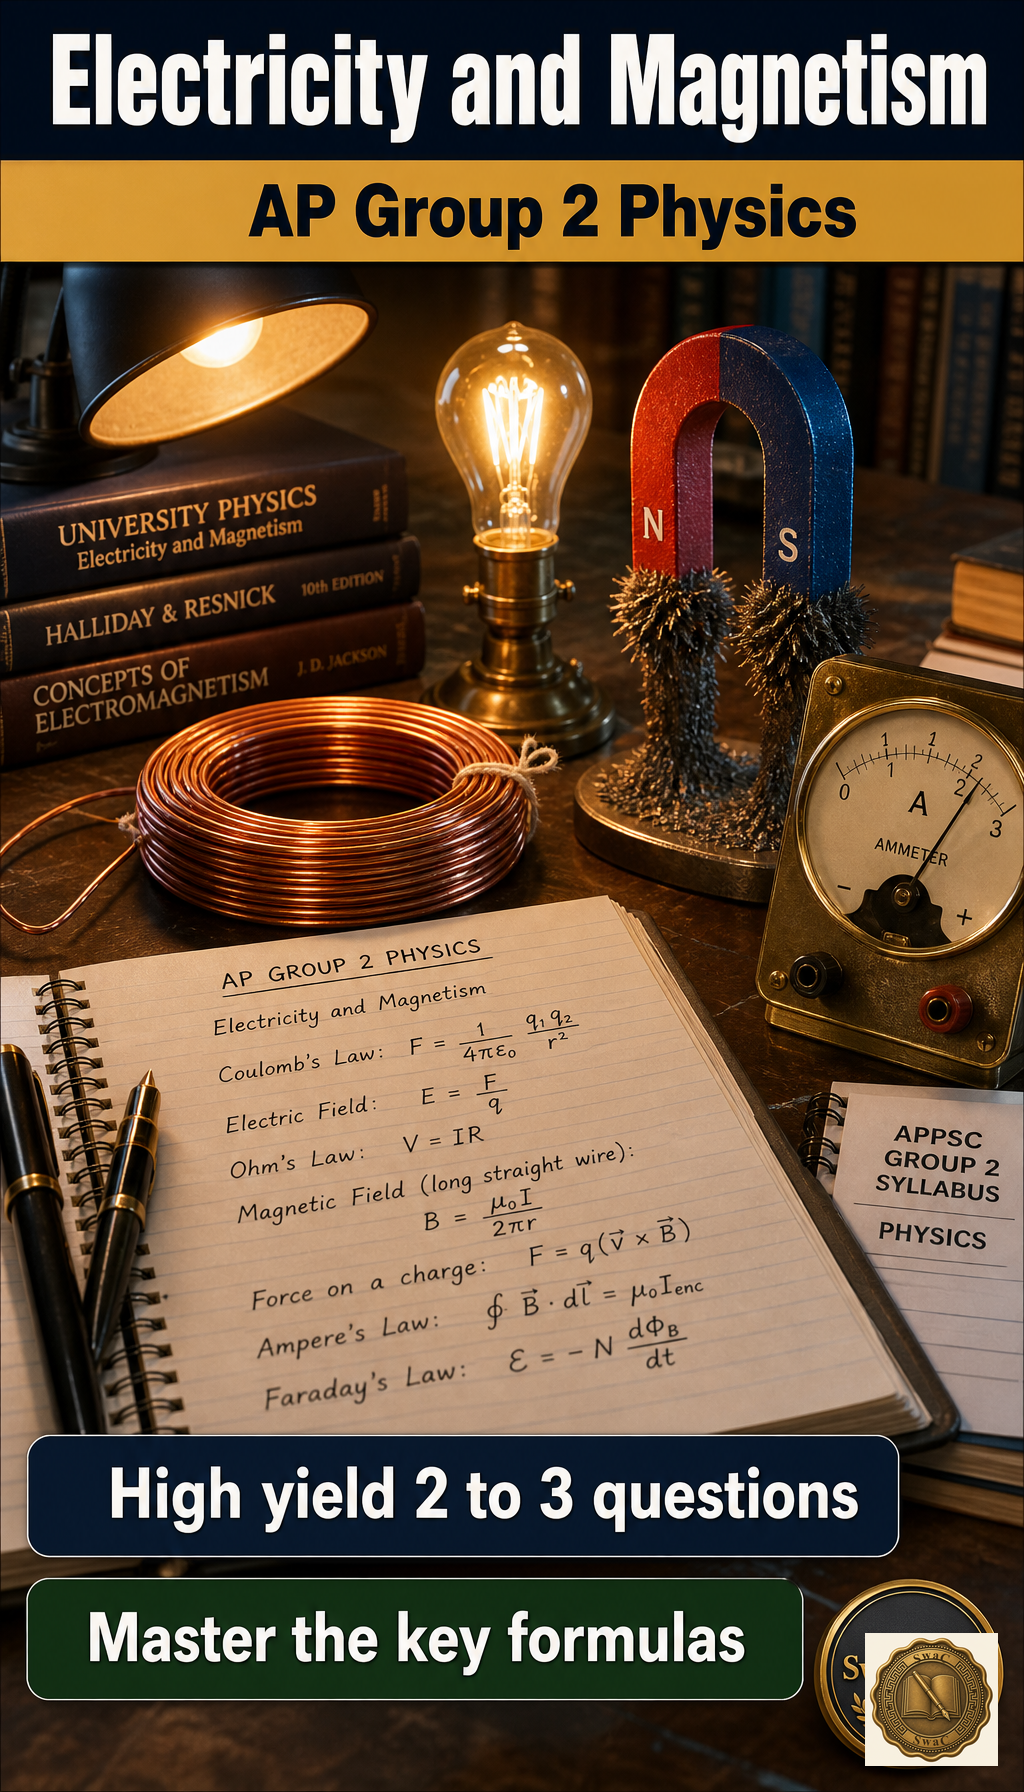 Electricity and Magnetism
AP Group 2 Physics
UNIVERSITY PHYSICS
Electricity and Magnetism
HALLIDAY & RESNICK 10th EDITION
CONCEPTS OF
ELECTROMAGNETISM
J. D. JACKSON
N
S
0 1 1 1 2 2 3
A
AMMETER
− +
AP GROUP 2 PHYSICS
Electricity and Magnetism
Coulomb's Law: F = 1/4πε₀ q₁q₂/r²
Electric Field: E = F/q
Ohm's Law: V = IR
Magnetic Field (long straight wire):
B = μ₀I/2πr
Force on a charge: F = q(v⃗ × B⃗)
Ampere's Law: ∮ B⃗ · dl⃗ = μ₀Ienc
Faraday's Law: ℰ = − N dΦB/dt
APPSC
GROUP 2
SYLLABUS
PHYSICS
High yield 2 to 3 questions
Master the key formulas
SwaC
SwaC